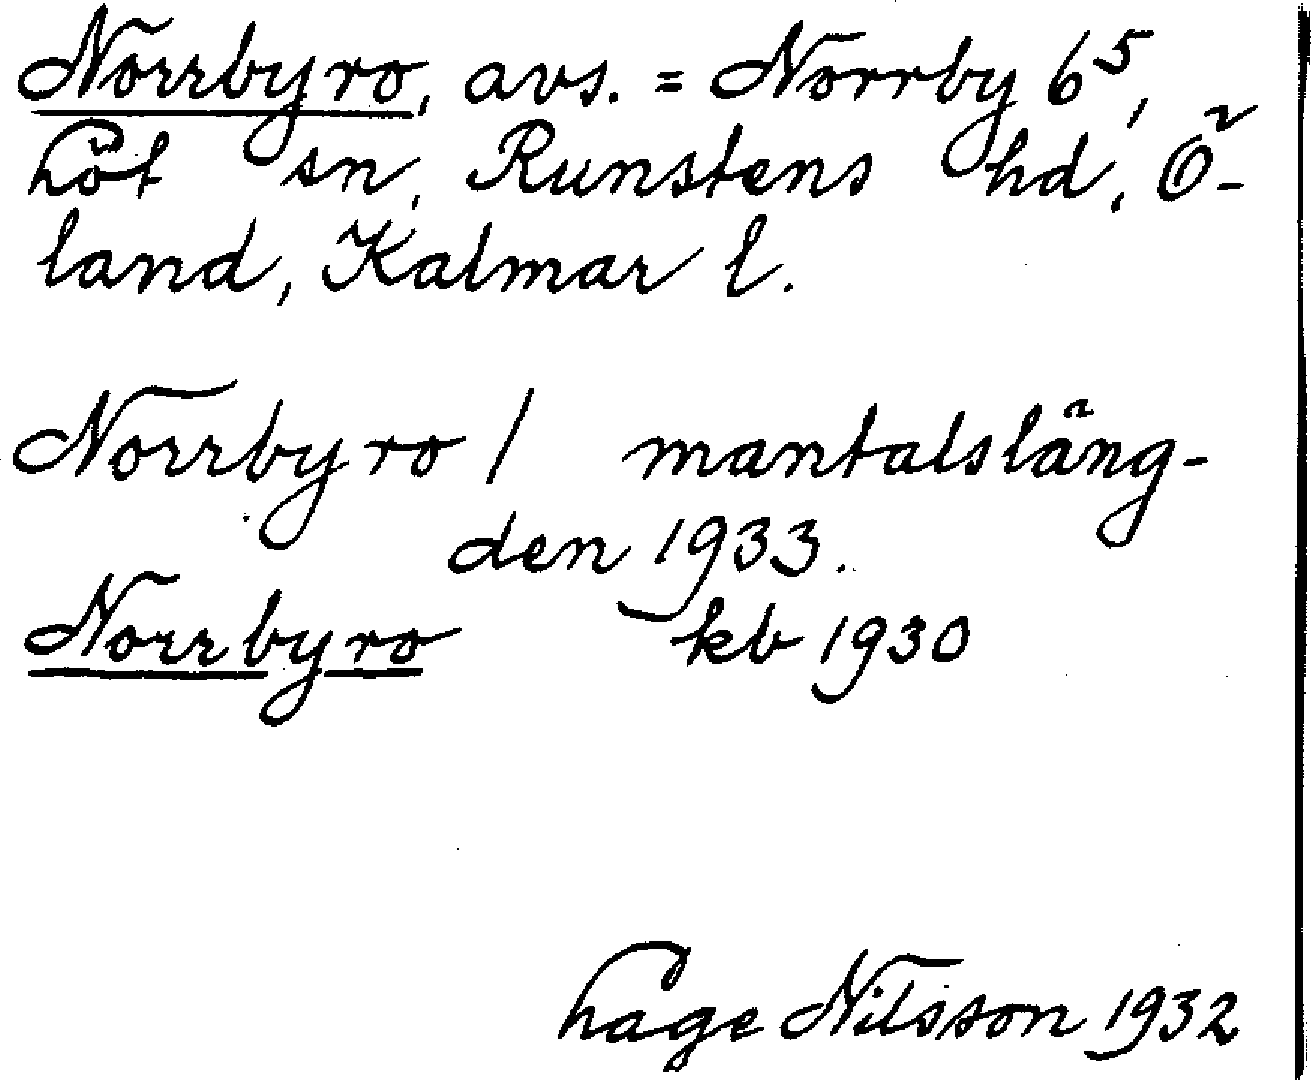 Norrbyro, avs. = Norrby 6⁵,
Löt sn, Runstens hd, Ö-
land, Kalmar l.
Norrbyro / mantalsläng-
den 1933.
Norrbyro kb 1930
Hage Nilsson 1932